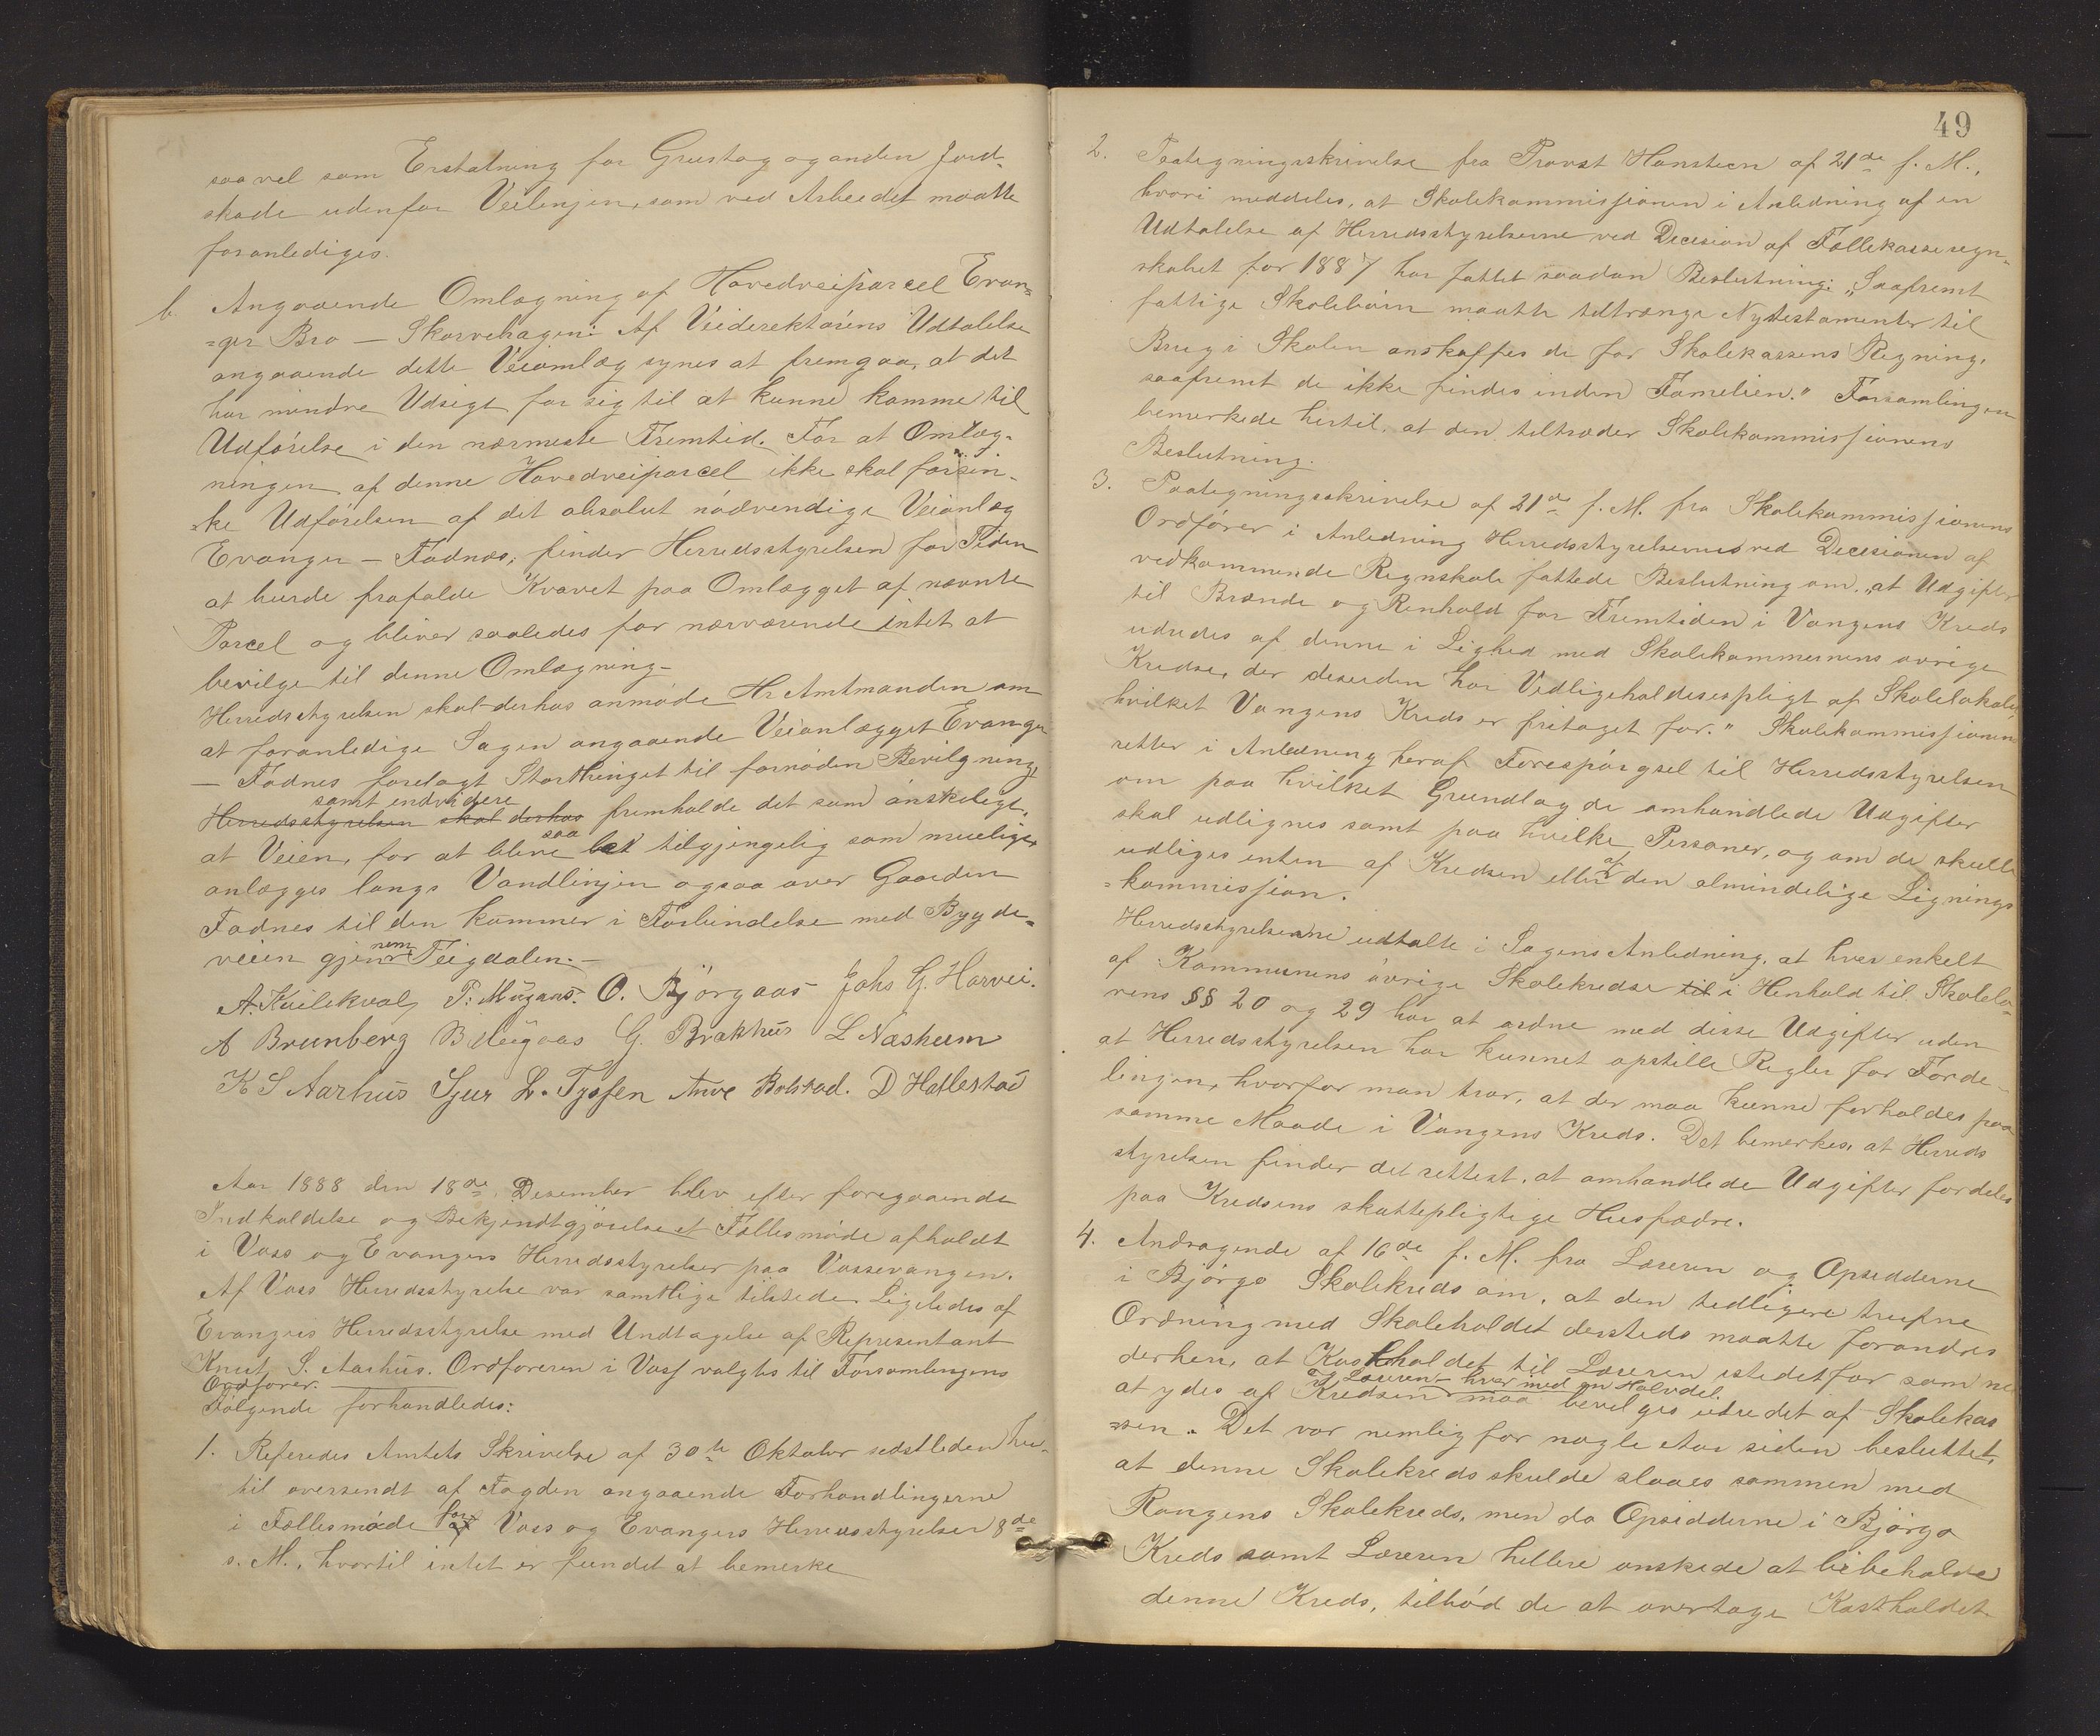 saavel som Erstatning for Grustag og anden Jord-
skade udenfor Veilinjen, som ved Arbeidet maatte
foranlediges.
b. Angaaende Omlægning af Hovedveiparcel Evan-
=ger Bro — Skorvehagen: Af Veidirektørens Udtalelse
angaaende dette Veiomlæg synes at fremgaa, at det
har mindre Udsigt for sig til at kunne komme til
Udførelse i den nærmeste Fremtid. For at Omlæg-
ningen af denne Hovedveiparcel ikke skal forsin-
ke Udførelsen af det absolut nødvendige Veianlæg
Evanger — Fadnæs, finder Herredsstyrelsen for Tiden
at burde frafalde Kravet paa Omlægget af nævnte
Parcel og bliver saaledes for nærværende intet at
bevilge til denne Omlægning —
Herredsstyrelsen skal derhos anmode Hr Amtmanden om
at foranledige Sagen angaaende Veianlægget Evanger
— Fadnes forelagt Storthinget til fornøden Bevilgning,
samt endvidere
Herredsstyrelsen skal derhos fremholde det som ønskeligt,
at Veien, for at blive saa let tilgjengelig som mueligt,
anlægges langs Vandlinjen ogsaa over Gaarden
Fadnes til den kommer i Forbindelse med Bygde-
veien gjennem Teigdalen. —
A. Kvilekval, T. Mügaas. O. Björgaas Johs G. Horvei.
A Brunberg B Mügaas G. Brækhus L Næsheim
K S Aarhus Sjur L. Tyssen Arve Bolstad. D Hatlestad
Aar 1888 den 18de Desember blev efter foregaaende
Indkaldelse og Bekjendtgjørelse et Fællesmøde afholdt
i Voss og Evangers Herredsstyrelser paa Vossevangen.
Af Voss Herredsstyrelse var samtlige tilstede. Ligeledes af
Evangers Herredsstyrelse med Undtagelse af Representant
Knut S. Aarhus. Ordføreren i Voss valgtes til Forsamlingens
Ordfører.
Følgende forhandledes:
1. Referedes Amtets Skrivelse af 30te Oktober sidstleden her-
til oversendt af Fogden angaaende Forhandlingerne
i Fællesmøde for Voss og Evangers Herredsstyrelser 8de
s. M., hvortil intet er fundet at bemerke
49
2. Paategningsskrivelse fra Provst Hansteen af 21de f. M.,
hvori meddeles, at Skolekommissionen i Anledning af en
Udtalelse af Herredsstyrelserne ved Decision af Fællekasseregn-
skabet for 1887 har fattet saadan Beslutning: „Saafremt
fattige Skolebørn maatte tiltrænge Nytestamenter til
Brug i Skolen anskaffes de for Skolekassens Regning,
saafremt de ikke findes inden Familien." Forsamlingen
bemerkede hertil, at den tiltræder Skolekommissionens
Beslutning.
3. Paategningsskrivelse af 21de f. M. fra Skolekommissionens
Ordfører i Anledning Herredsstyrelsernes ved Decisionen af
vedkommende Regnskab fattede Beslutning om, „at Udgifter
til Brænde og Renhold for Fremtiden i Vangens Kreds
udredes af denne i Lighed med Skolekommunens øvrige
Kredse, der desuden har Vedligeholdelsespligt af Skolelokaler,
hvilket Vangens Kreds er fritaget for." Skolekommissionen
retter i Anledning heraf Forespørgsel til Herredsstyrelsen
om paa hvilket Grundlag de omhandlede Udgifter
skal udlignes samt paa hvilke Personer, og om de skulle
udliges enten af Kredsen eller af den almindelige Lignings
=kommission.
Herredsstyrelserne udtalte i Sagens Anledning, at hver enkelt
af Kommunens øvrige Skolekredse til i Henhold til Skolelo-
vens §§ 20 og 29 har at ordne med disse Udgifter uden
at Herredsstyrelsen har kunnet opstille Regler for Forde-
lingen, hvorfor man tror, at der maa kunne forholdes paa
samme Maade i Vangens Kreds. Det bemerkes, at Herreds
styrelsen finder det rettest, at omhandlede Udgifter fordeles
paa Kredsens skattepligtige Husfædre.
4. Andragende af 16de f. M. fra Læreren og Opsidderne
i Bjørgo Skolekreds om, at den tidligere trufne
Ordning med Skoleholdet dersteds maatte forandres
derhen, at Kostholdet til Læreren istedetfor som nu
at ydes af Kredsen og Læreren hver med en Halvdel, maa bevilges udredet af Skolekas
=sen. Det var nemlig for nogle Aar siden besluttet,
at denne Skolekreds skulde slaaes sammen med
Rongens Skolekreds, men da Opsidderne i Bjørgo
Kreds samt Læreren hellere ønskede at bibeholde
denne Kreds, tilbød de at overtage Kostholdet